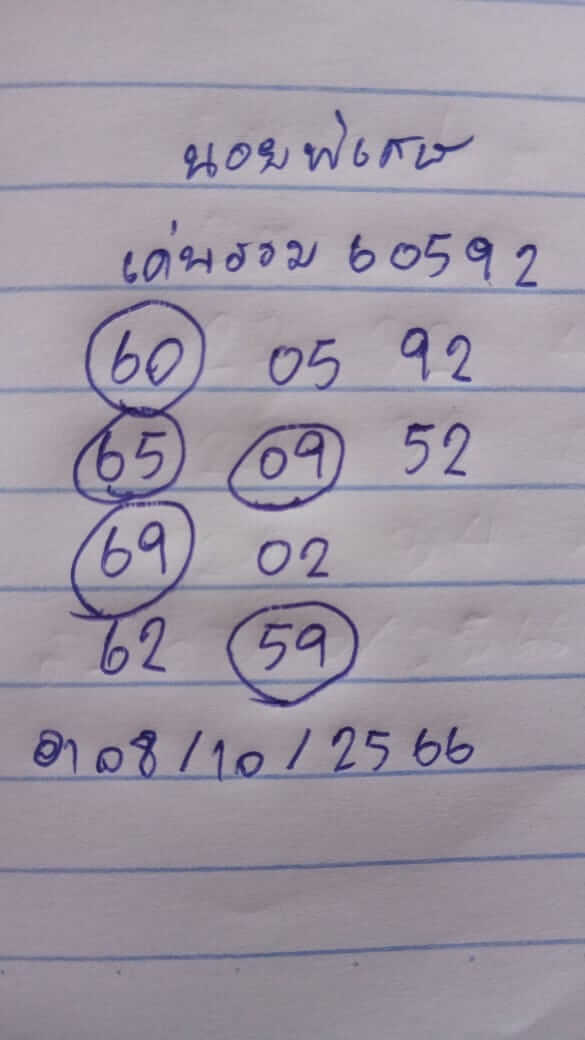 นอยพิเศษ
เด่นรวม 60592
60 05 92
65 09 52
69 02
62 59
อา 08/10/2566